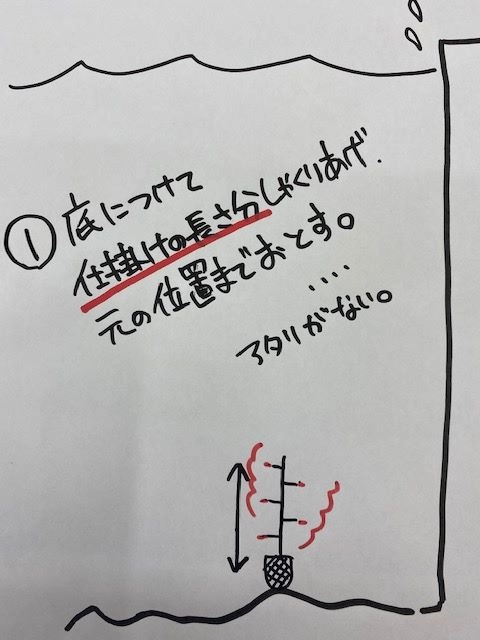 ① 底につけて
仕掛けの長さ分しゃくりあげ.
元の位置までおとす。
....
アタリがない。